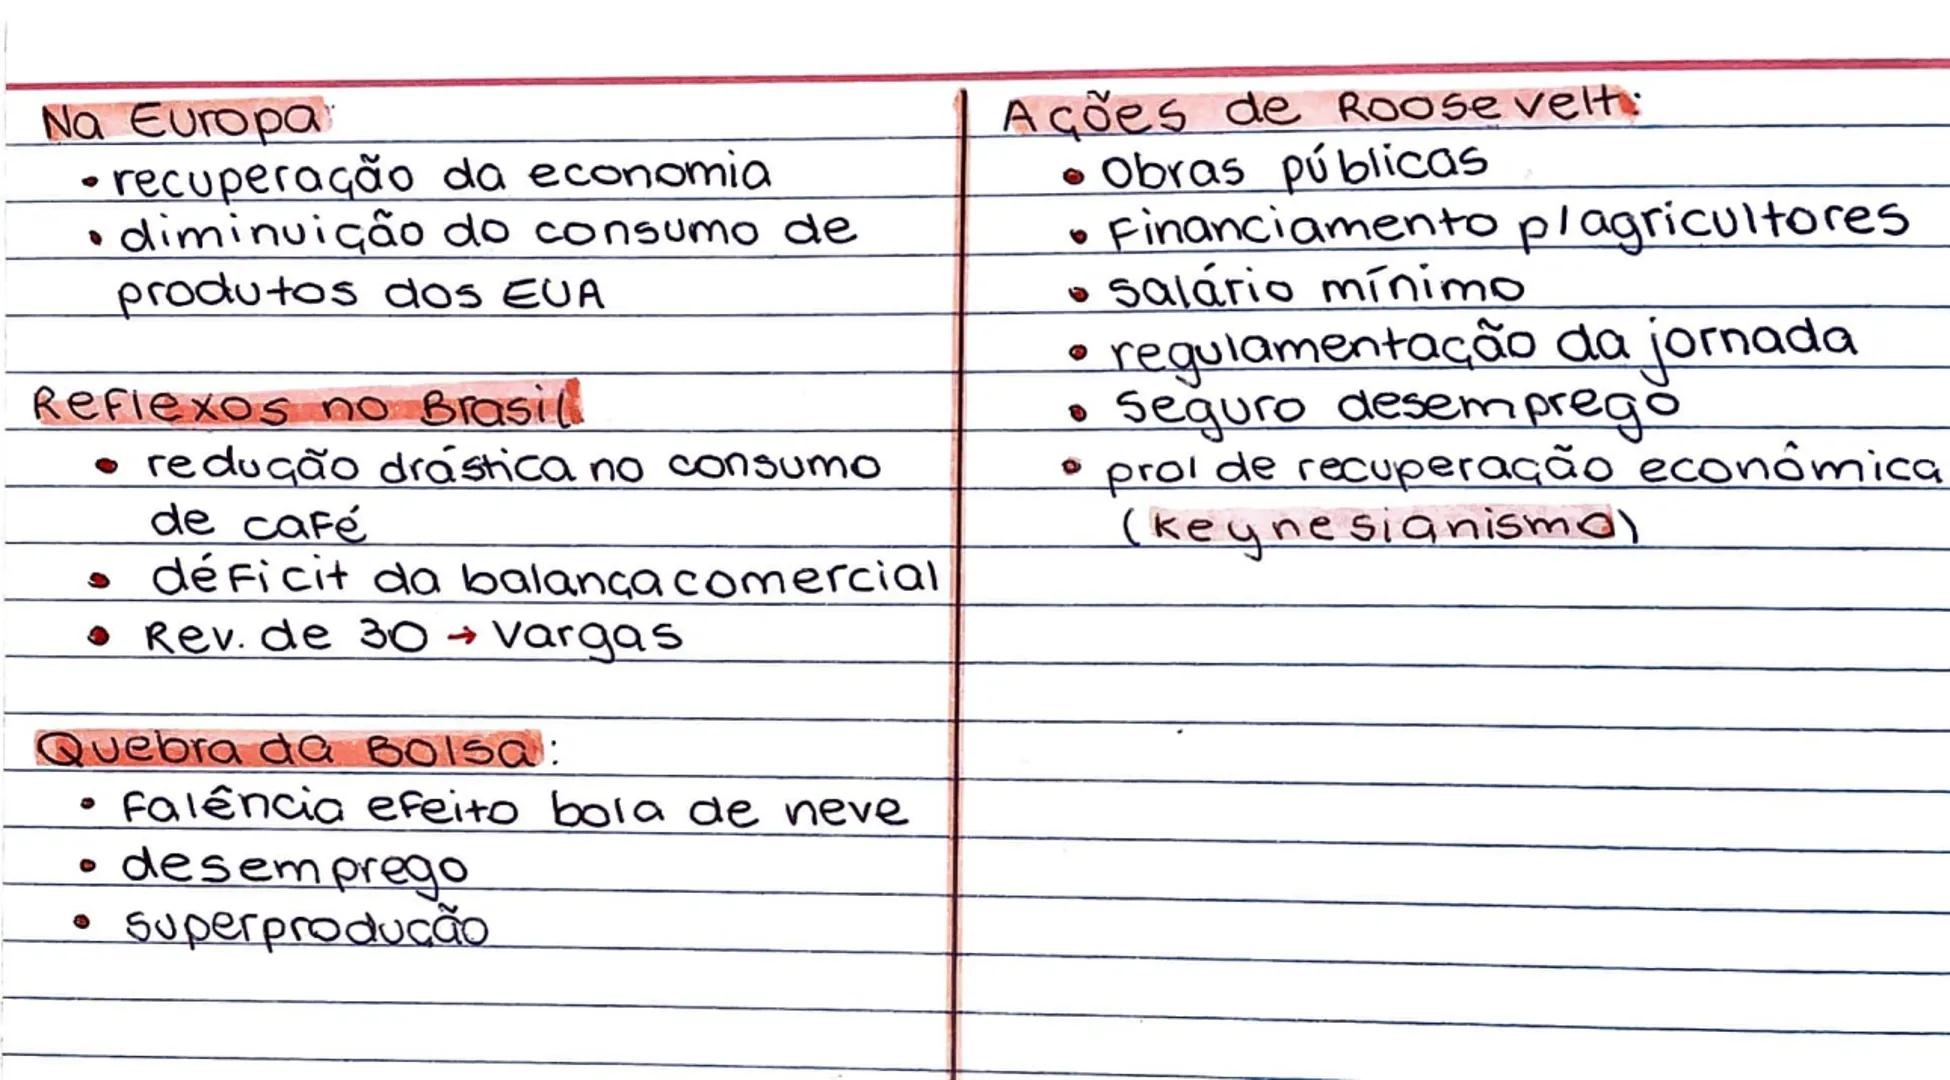 Na Europa:
• recuperação da economia
• diminuição do consumo de
produtos dos EUA
Reflexos no Brasil
• redução drástica no consumo
de café
• déficit da balança comercial
• Rev. de 30 → Vargas
Quebra da Bolsa:
• Falência efeito bola de neve
• desemprego
• superprodução
Ações de Roosevelt:
• Obras públicas
• Financiamento p/ agricultores
• salário mínimo
• regulamentação da jornada
• seguro desemprego
• prol de recuperação econômica
(keynesianismo)